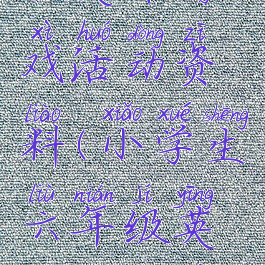 xì huó dòng zī
戏活动资
liào xiǎo xué shēng
料(小学生
liù nián jí yīng
六年级英